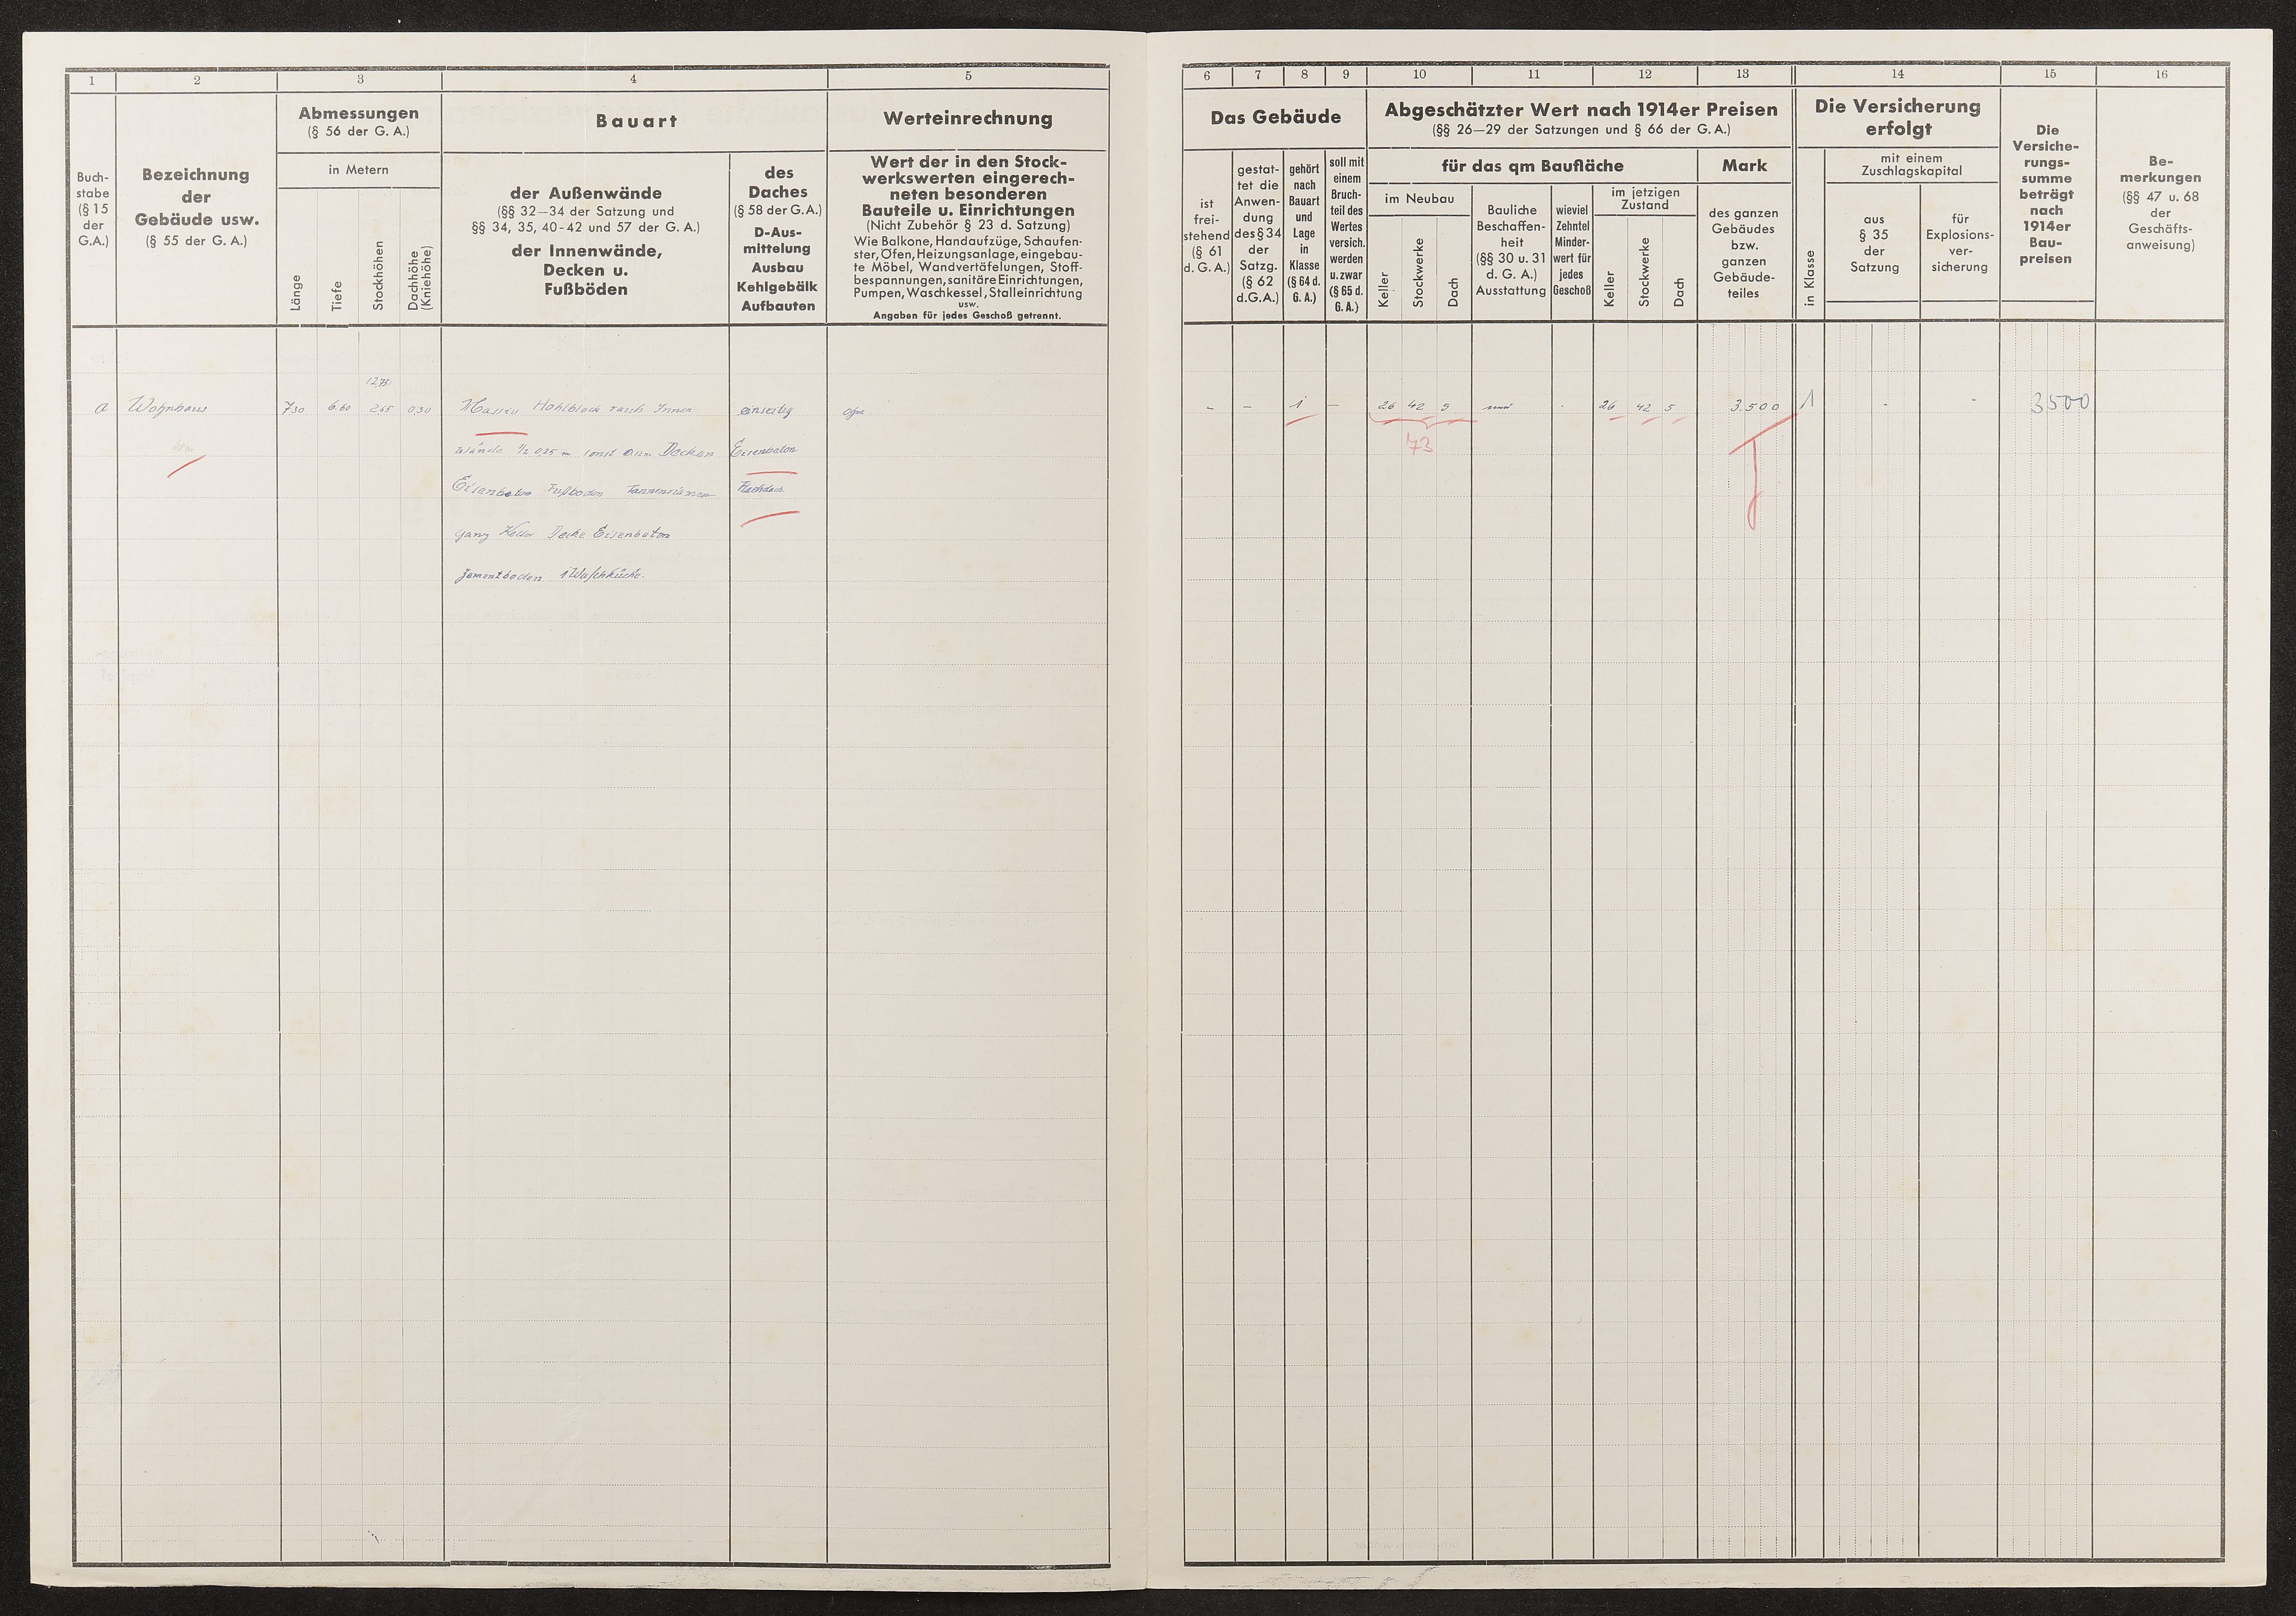 1 2 3 4 5
Abmessungen
(§ 56 der G. A.)
in Metern
Bauart
Werteinrechnung
Buch-
stabe
(§ 15
der
G.A.)
Bezeichnung
der
Gebäude usw.
(§ 55 der G. A.)
Länge
Tiefe
Stockhöhen
Dachhöhe
(Kniehöhe)
der Außenwände
(§§ 32—34 der Satzung und
§§ 34, 35, 40-42 und 57 der G. A.)
der Innenwände,
Decken u.
Fußböden
des
Daches
(§ 58 der G.A.)
D-Aus-
mittelung
Ausbau
Kehlgebälk
Aufbauten
Wert der in den Stock-
werkswerten eingerech-
neten besonderen
Bauteile u. Einrichtungen
(Nicht Zubehör § 23 d. Satzung)
Wie Balkone, Handaufzüge, Schaufen-
ster, Öfen, Heizungsanlage, eingebau-
te Möbel, Wandvertäfelungen, Stoff-
bespannungen, sanitäre Einrichtungen,
Pumpen, Waschkessel, Stalleinrichtung
usw.
Angaben für jedes Geschoß getrennt.
12,75
a Wohnhaus 7.30 6.60 2.65 0.30 Massiv Hohlblock rauh Innen einseitig
wände ½ 0.25 m sonst 0.12m Decken Eisenbeton
Eisenbeton Fußboden Tannenriemen Flachdach
ganz Keller Decke Eisenbeton
Zementboden 1 Waschküche.
6 7 8 9 10 11 12 13 14 15 16
Das Gebäude
Abgeschätzter Wert nach 1914er Preisen
(§§ 26—29 der Satzungen und § 66 der G. A.)
Die Versicherung
erfolgt
ist
frei-
stehend
(§ 61
d. G. A.)
gestat-
tet die
Anwen-
dung
des § 34
der
Satzg.
(§ 62
d.G.A.)
gehört
nach
Bauart
und
Lage
in
Klasse
(§ 64 d.
G. A.)
soll mit
einem
Bruch-
teil des
Wertes
versich.
werden
u. zwar
(§ 65 d.
G. A.)
für das qm Baufläche
Mark
im Neubau
Keller
Stockwerke
Dach
Bauliche
Beschaffen-
heit
(§§ 30 u. 31
d. G. A.)
Ausstattung
wieviel
Zehntel
Minder-
wert für
jedes
Geschoß
im jetzigen
Zustand
Keller
Stockwerke
Dach
des ganzen
Gebäudes
bzw.
ganzen
Gebäude-
teiles
in Klasse
mit einem
Zuschlagskapital
aus
§ 35
der
Satzung
für
Explosions-
ver-
sicherung
Die
Versiche-
rungs-
summe
beträgt
nach
1914er
Bau-
preisen
Be-
merkungen
(§§ 47 u. 68
der
Geschäfts-
anweisung)
- - 1 - 26 42 5 neu 26 42 5 3.500 1 - - 3500
73